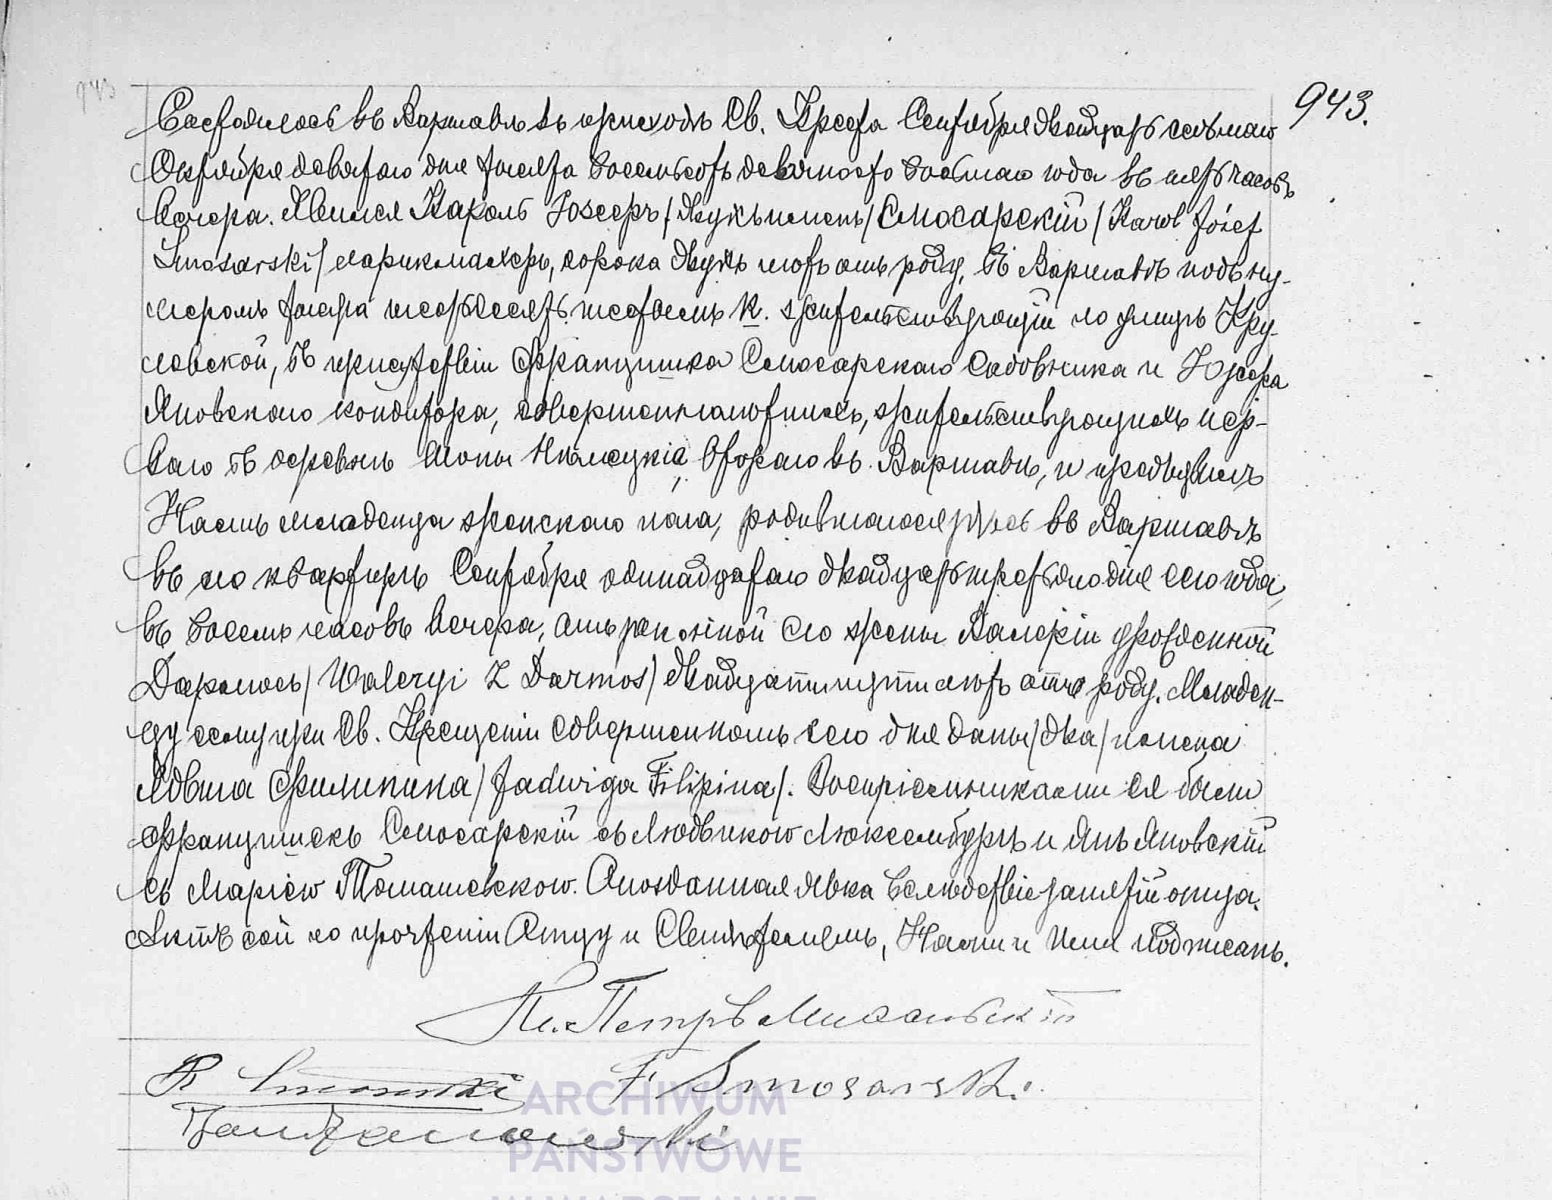 943.
Состоялось въ Варшавѣ въ приходѣ Св. Креста Сентября двадцать седьмаго
Октября девятаго дня тысяча восемьсотъ девяносто восьмаго года въ пять часовъ
вечера. Явился Кароль Іосефъ /двухъ именъ/ Смосарскій /Karol Józef
Smosarski/ парикмахеръ, сорока двухъ лѣтъ отъ роду, въ Варшавѣ подъ ну-
меромъ тысяча шестьдесятъ шестымъ К. жительствующій по улицѣ Кру-
левской, въ присутствіи Францишка Смосарскаго садовника и Юзефа
Яновскаго кондитора, совершеннолѣтнихъ, жительствующихъ пер-
ваго въ деревнѣ втораго въ Варшавѣ, и предъявилъ
Намъ младенца женскаго пола, родившагося здѣсь въ Варшавѣ
въ его квартирѣ Сентября одиннадцатаго двадцать третьяго дня сего года,
въ восемь часовъ вечера, отъ законной его жены Валеріи урожденной
Дармось /Waleryi z Darmos/ двадцати пяти лѣтъ отъ роду. Младен-
цу сему при Св. Крещеніи совершенномъ сего дня даны /два/ имена
Ядвига Филипина /Jadwiga Filipina/. Воспріемниками ея были
Францишекъ Смосарскій съ Людвикою Люксембургъ и Янъ Яновскій
съ Маріею Томашевскою. Опозданная явка вслѣдствіе занятій отца.
Актъ сей по прочтеніи Отцу и Свидѣтелямъ, Нами и Ими подписанъ.
Кс. Петръ
R Smosarski F. Smosarski.
Jan Janowski
ARCHIWUM
PAŃSTWOWE
W WARSZAWIE